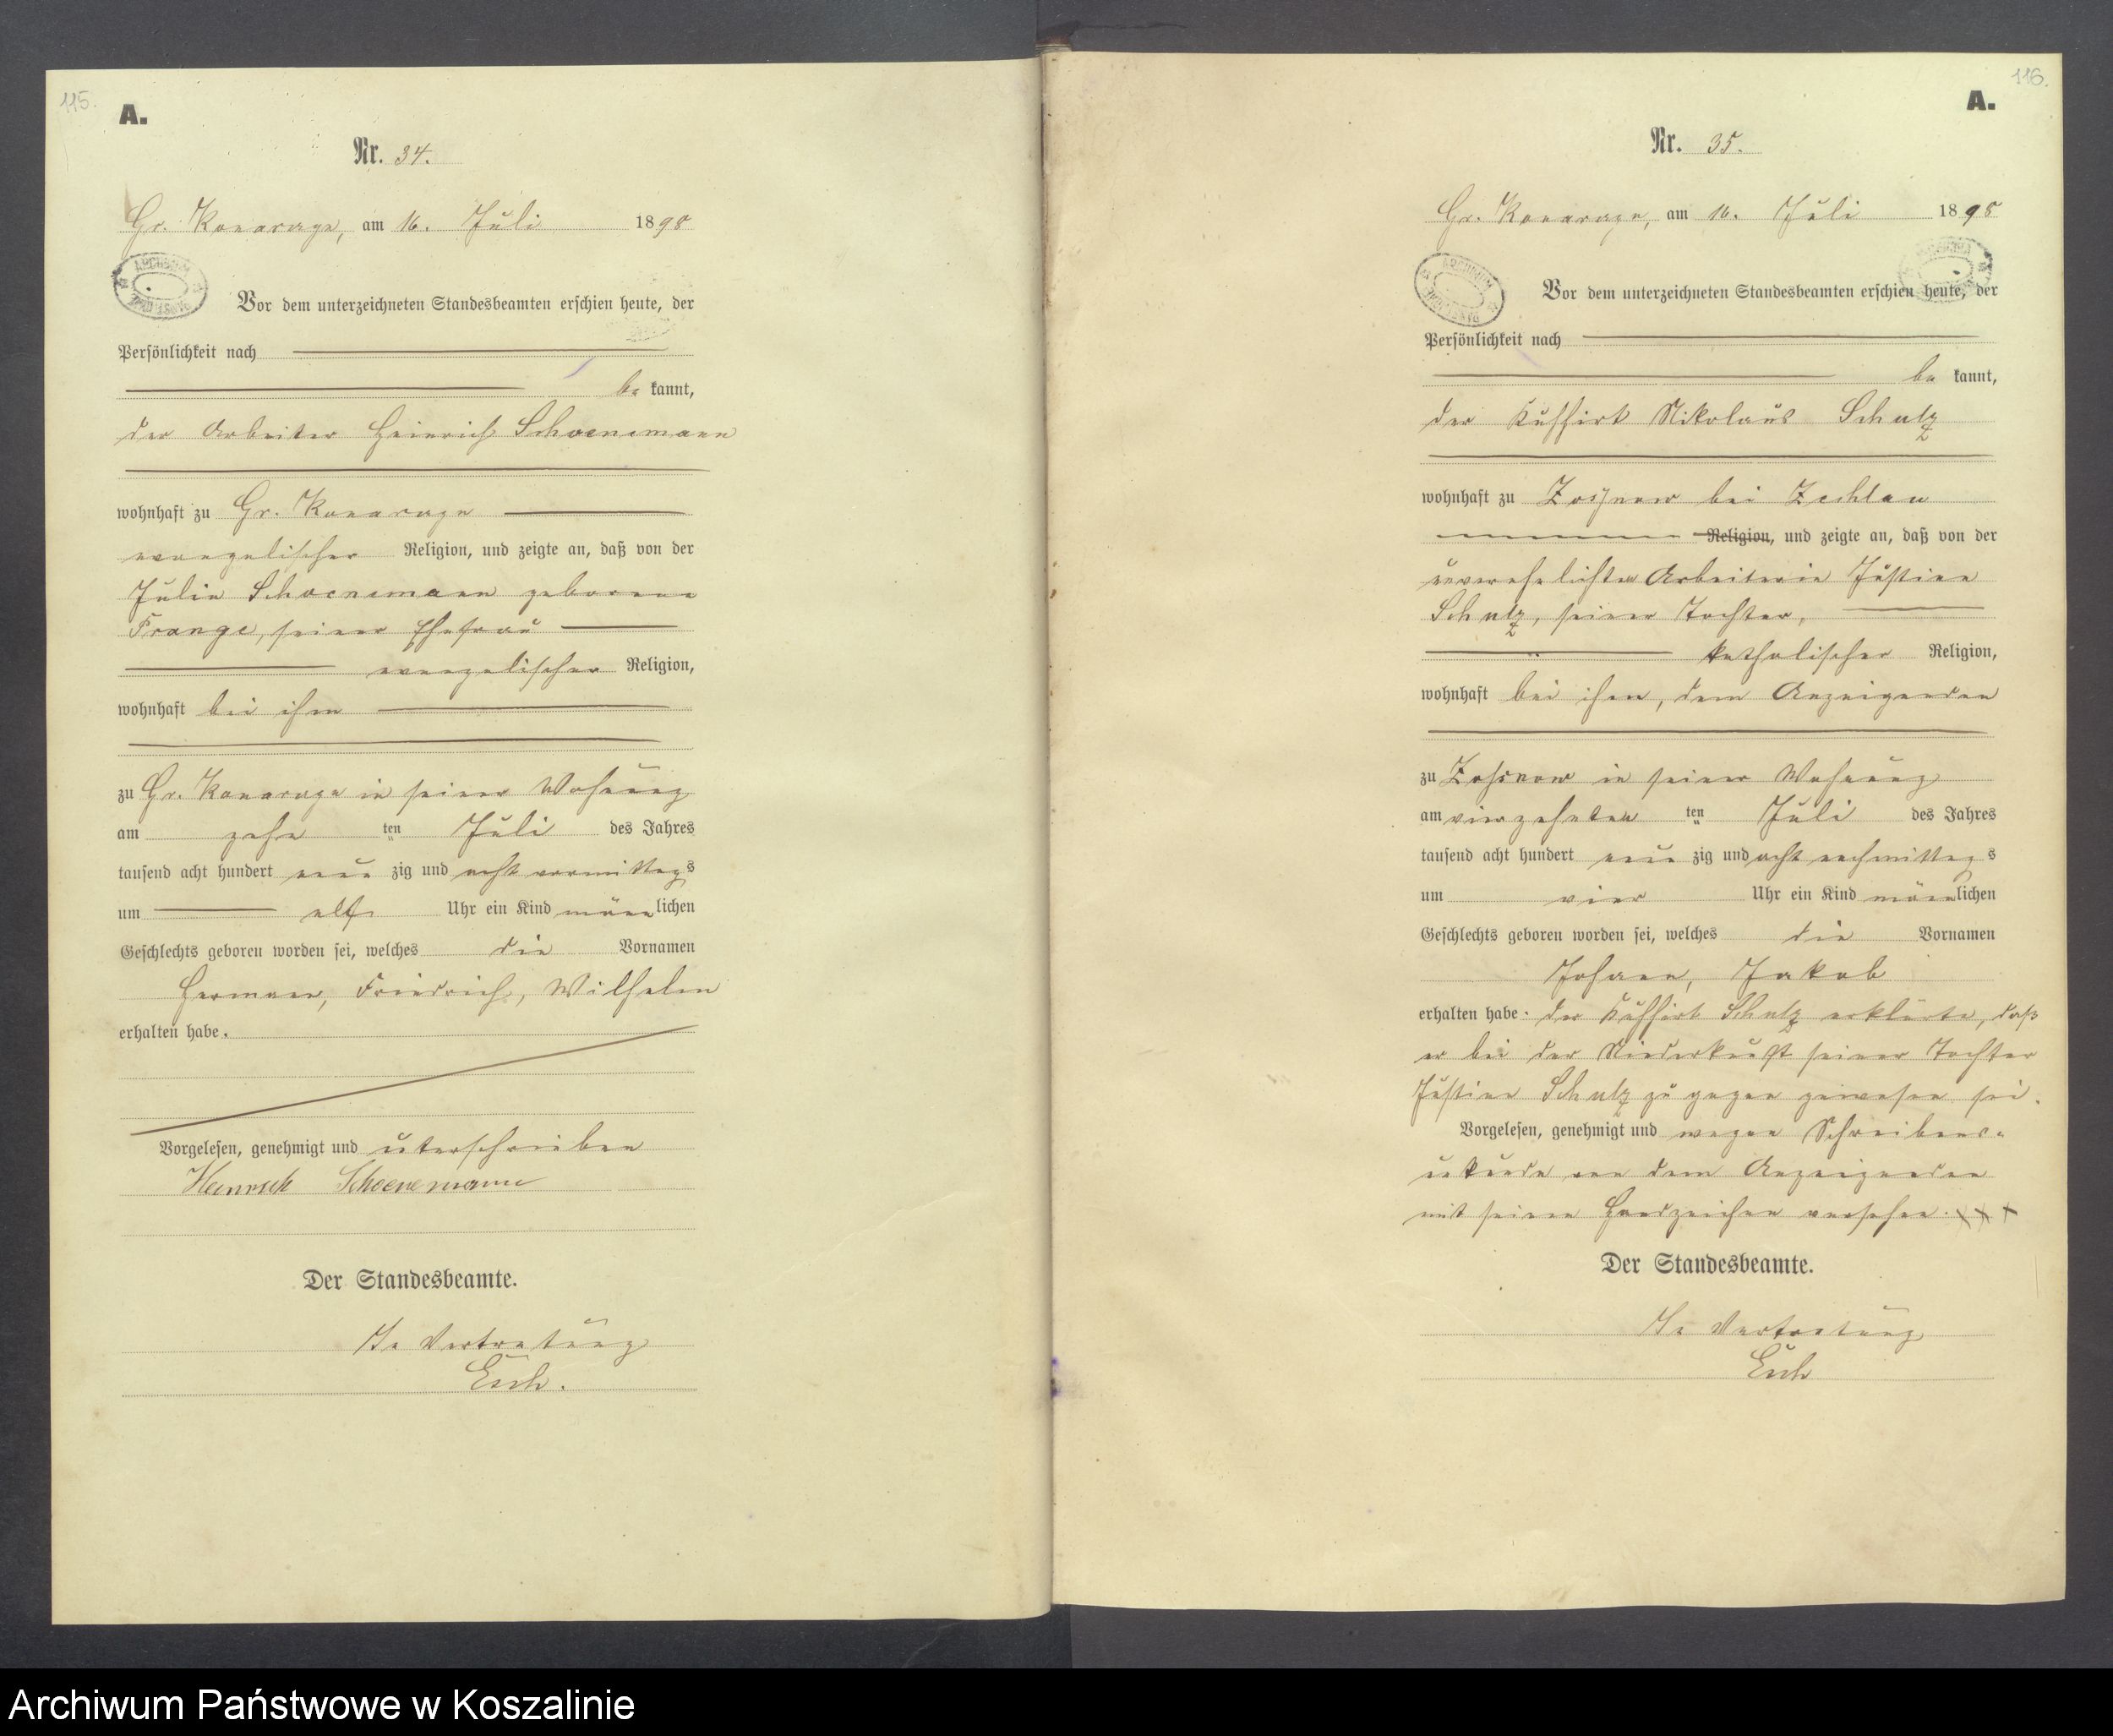 115.
A.
Nr. 34.
Gr. Konarczyn, am 16. Juli 1898
Vor dem unterzeichneten Standesbeamten erschien heute, der
Persönlichkeit nach
be kannt,
der Arbeiter Heinrich Schoenemann
wohnhaft zu Gr. Konarczyn
evangelischer Religion, und zeigte an, daß von der
Julie Schoenemann geborene
Frange, seiner Ehefrau
evangelischer Religion,
wohnhaft bei ihm
zu Gr. Konarczyn in seiner Wohnung
am zehn ten Juli des Jahres
tausend acht hundert neun zig und acht vormittags
um elf Uhr ein Kind männlichen
Geschlechts geboren worden sei, welches die Vornamen
Hermann, Friedrich, Wilhelm
erhalten habe.
Vorgelesen, genehmigt und unterschrieben
Heinrich Schoenemann
Der Standesbeamte.
In Vertretung
116.
A.
Nr. 35.
Gr. Konarczyn, am 16. Juli 1898
Vor dem unterzeichneten Standesbeamten erschien heute, der
Persönlichkeit nach
be kannt,
der Kuhhirt Nikolaus Schulz
wohnhaft zu bei Zechlau
Religion, und zeigte an, daß von der
unverehelichten Arbeiterin Justine
Schulz, seiner Tochter,
katholischer Religion,
wohnhaft bei ihm, dem Anzeigenden
zu in seiner Wohnung
am vierzehnten ten Juli des Jahres
tausend acht hundert neun zig und acht nachmittags
um vier Uhr ein Kind männlichen
Geschlechts geboren worden sei, welches die Vornamen
Johann, Jakob
erhalten habe. der Kuhhirt Schulz erklärte, daß
er bei der Niederkunft seiner Tochter
Justine Schulz zu gegen gewesen sei.
Vorgelesen, genehmigt und wegen Schreibens-
unkunde von dem Anzeigenden
mit seinem Handzeichen versehen. +++
Der Standesbeamte.
In Vertretung
Archiwum Państwowe w Koszalinie